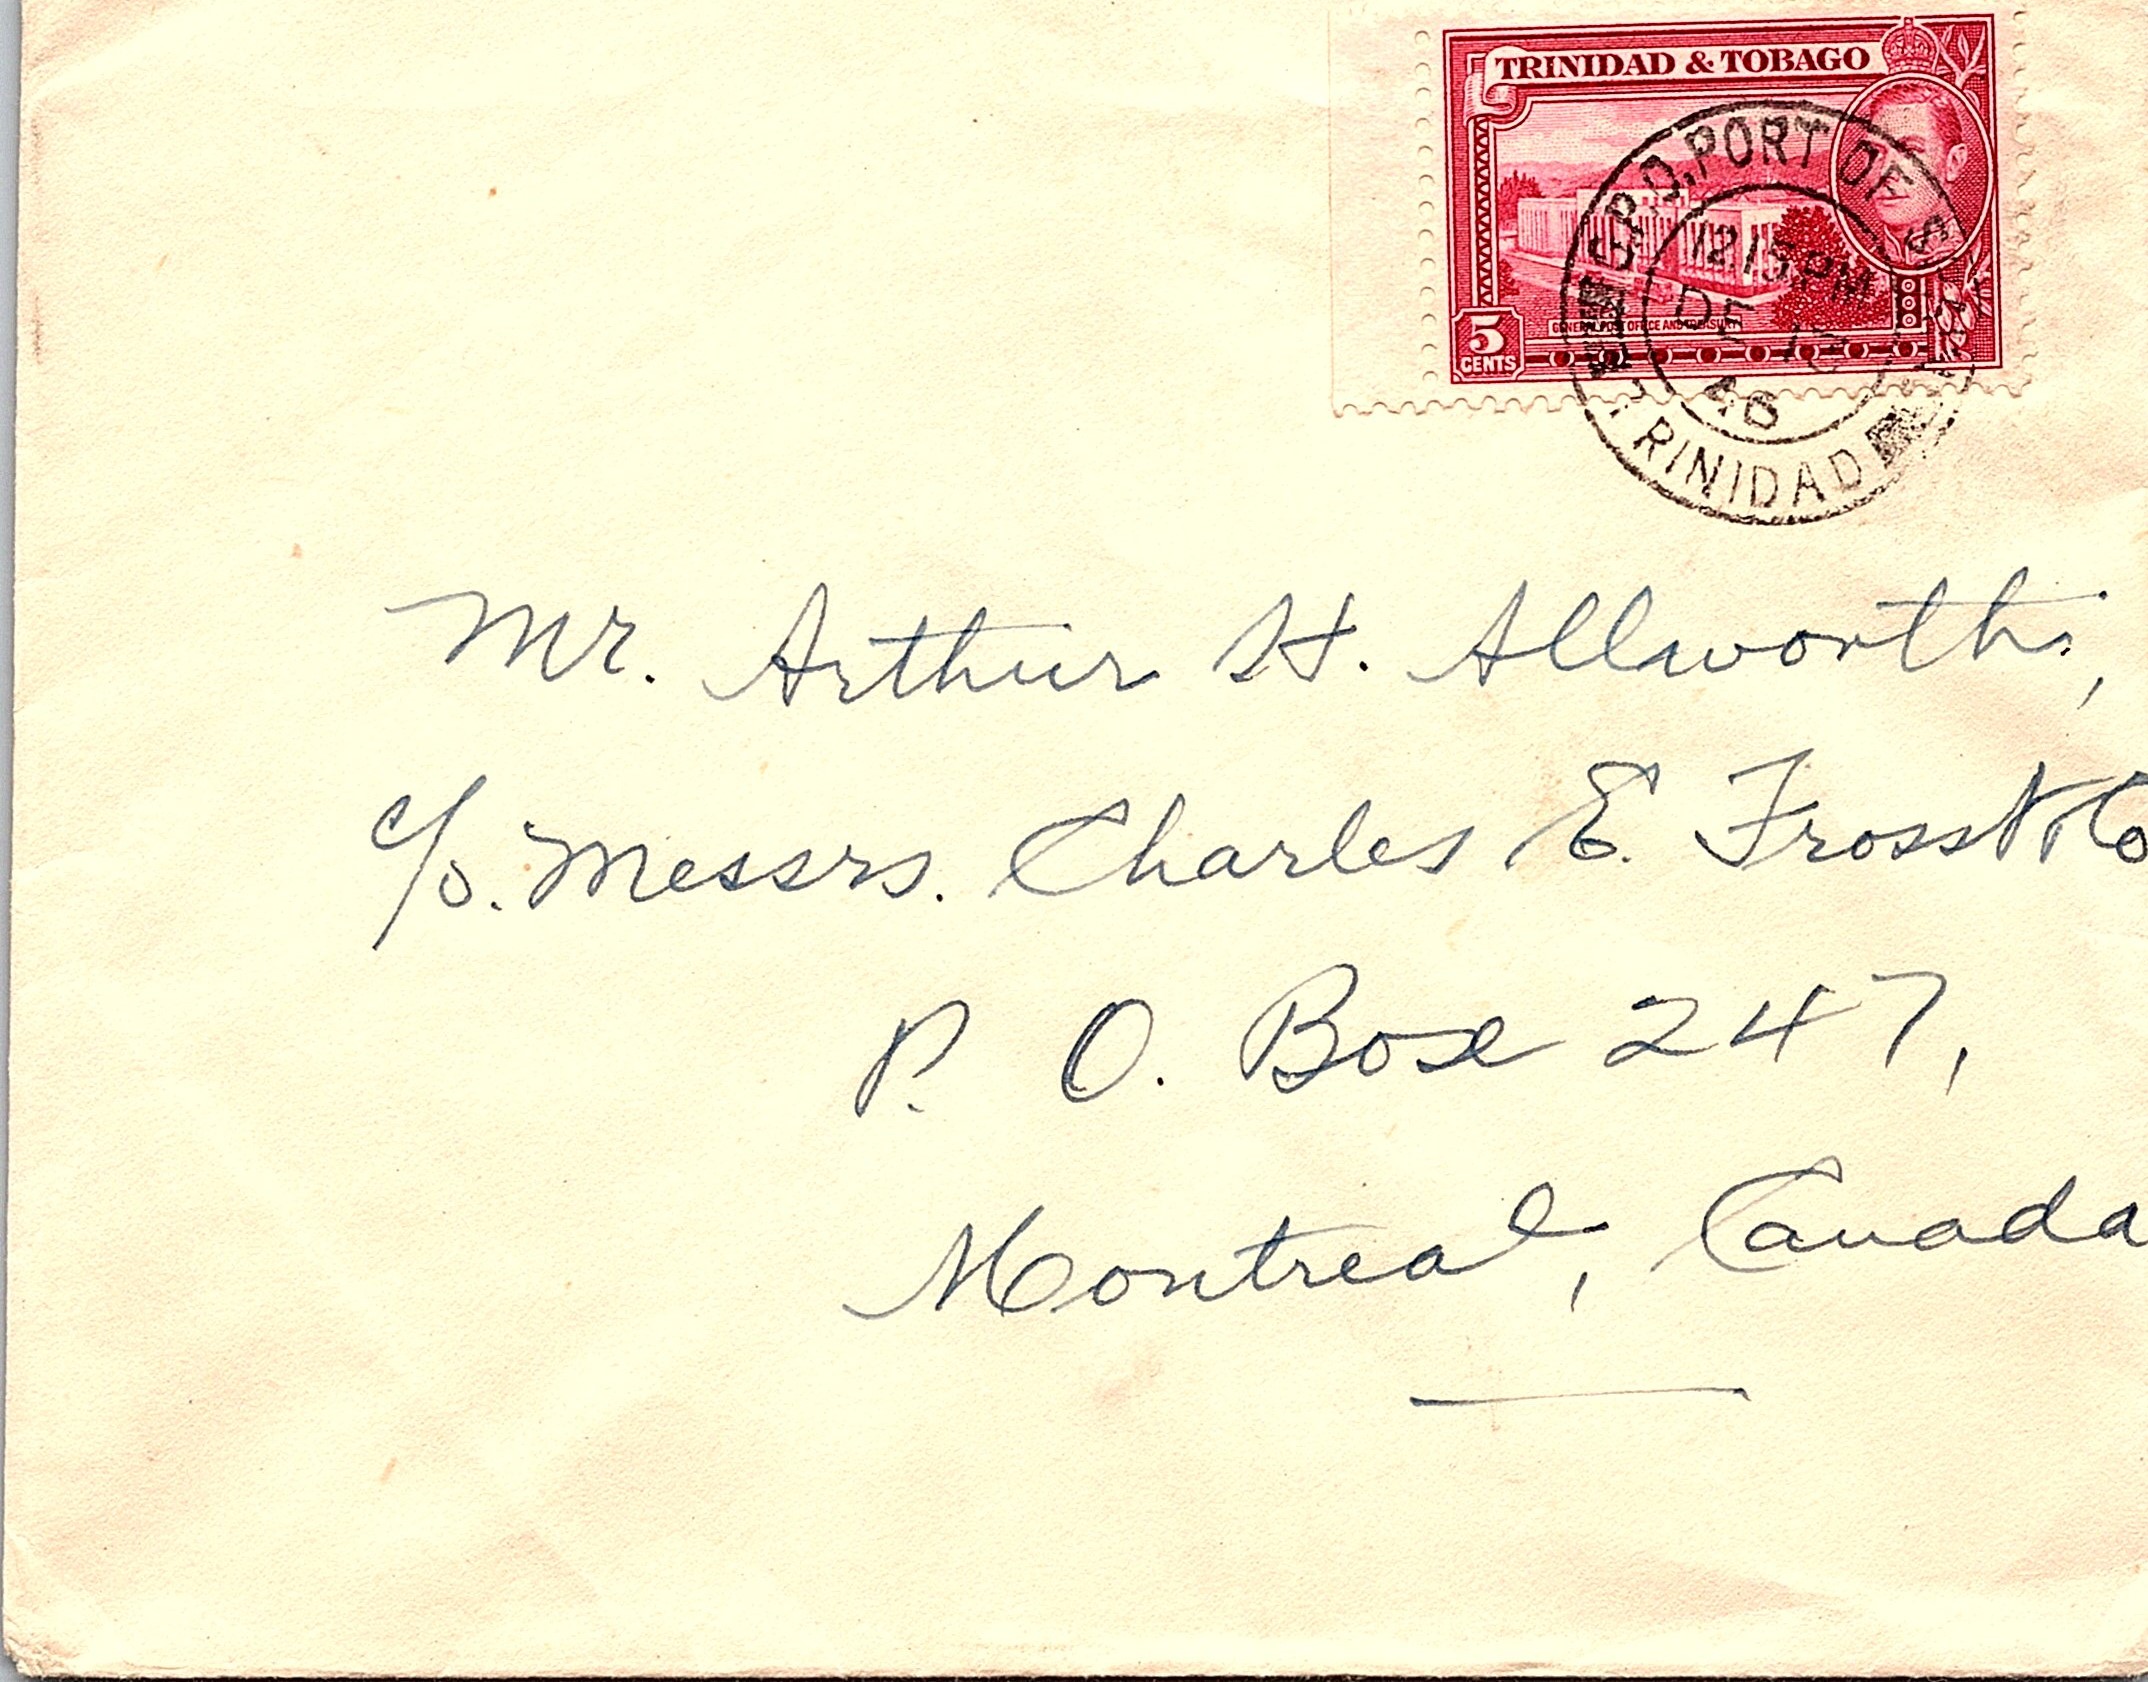 TRINIDAD & TOBAGO
G.P.O. PORT OF S
12.15 PM
DE
46
TRINIDAD
GENERAL POST OFFICE AND TREASURY
5
CENTS
Mr. Arthur H. Allworth,
c/o. Messrs. Charles E. Frosst & Co
P. O. Box 247,
Montreal, Canada